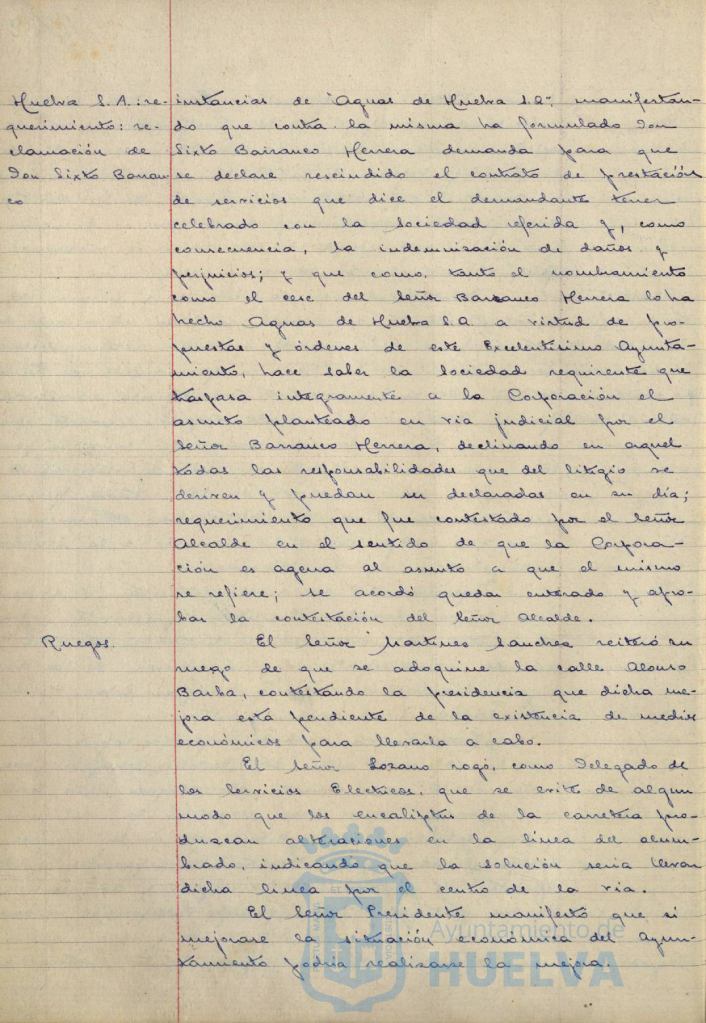 Huelva S.A.: re-
querimiento: re-
clamación de
Don Sixto Barran
co
instancias de "Aguas de Huelva S.A.", manifestan-
do que contra la misma ha formulado Don
Sixto Barranco Herrera demanda para que
se declare rescindido el contrato de prestación
de servicios que dice el demandante tener
celebrado con la Sociedad referida y, como
consecuencia, la indemnización de daños y
perjuicios; y que como, tanto el nombramiento
como el cese del Señor Barranco Herrera lo ha
hecho Aguas de Huelva S.A. a virtud de pro-
puestas y órdenes de este Excelentísimo Ayunta-
miento, hace saber la Sociedad requirente que
traspasa integramente a la Corporación el
asunto planteado en via judicial por el
Señor Barranco Herrera, declinando en aquel
todas las responsabilidades que del litigio se
deriven y puedan ser declaradas en su día;
requerimiento que fue contestado por el Señor
Alcalde en el sentido de que la Corpora-
ción es agena al asunto a que el mismo
se refiere; se acordó quedar enterado y apro-
bar la contestación del Señor Alcalde.
Ruegos.
El Señor Martines Sanchez reiteró su
ruego de que se adoquine la calle Alonso
Barba, contestando la presidencia que dicha me-
jora está pendiente de la existencia de medios
económicos para llevarla a cabo.
El Señor Lozano rogó, como Delegado de
los Servicios Electricos, que se evite de algun
modo que los eucaliptus de la carretera pro-
duzcan alteraciones en la línea del alum-
brado, indicando que la solución seria llevar
dicha línea por el centro de la via.
El Señor Presidente manifestó que si
mejorase la situación económica del Ayun-
tamiento podría realizarse la mejora.
Ayuntamiento de
HUELVA